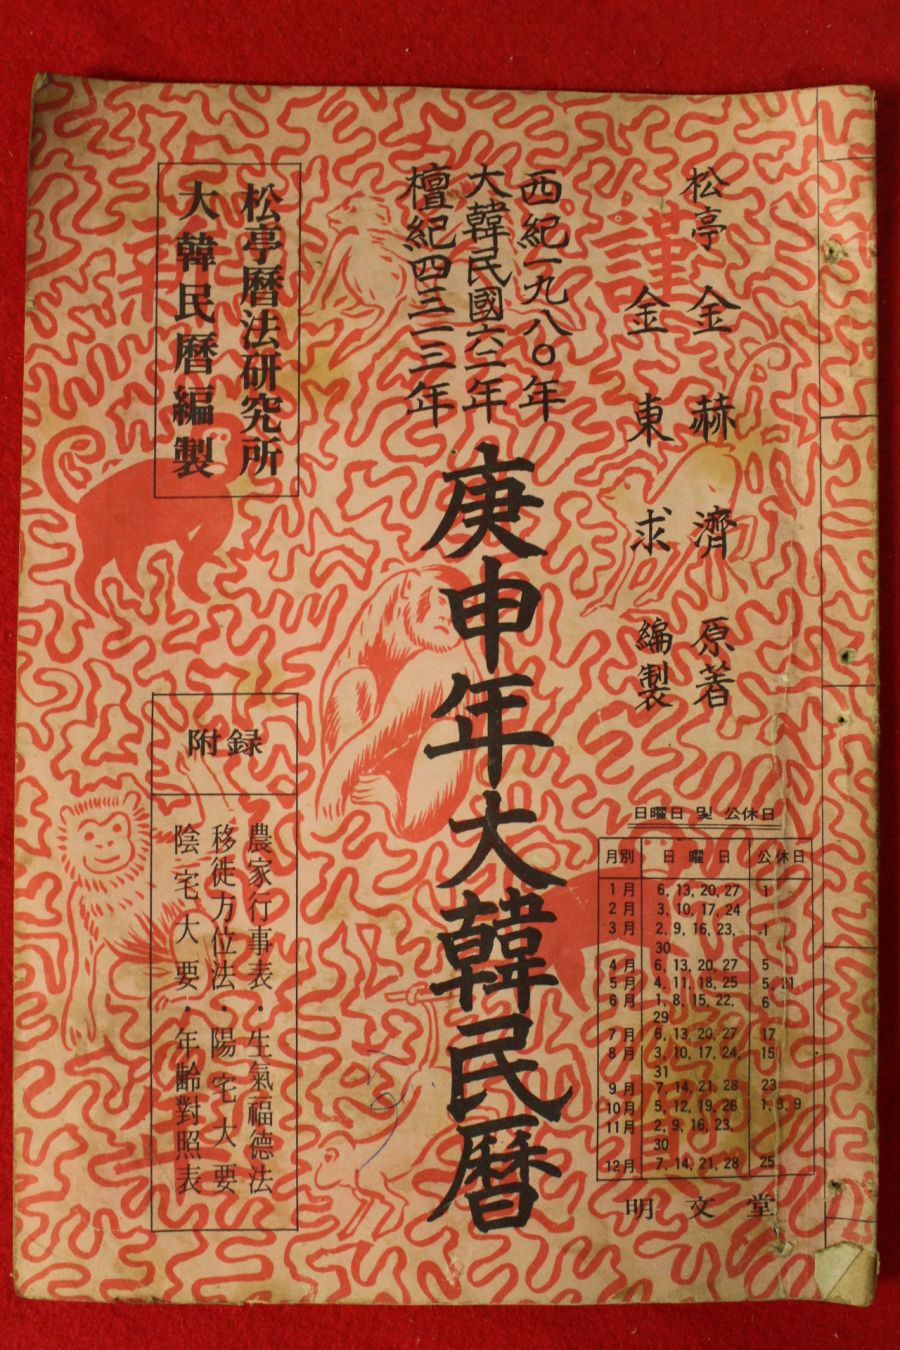 松亭 金赫濟 原著
金東求 編製
西紀一九八〇年
大韓民國六二年
檀紀四三一三年
庚申年大韓民曆
松亭曆法研究所
大韓民曆編製
附錄
農家行事表·生氣福德法
移徙方位法·陽宅大要
陰宅大要·年齡對照表
日曜日 및 公休日
月別 日曜日 公休日
1月 6, 13, 20, 27 1
2月 3, 10, 17, 24
3月 2, 9, 16, 23, 1
30
4月 6, 13, 20, 27 5
5月 4, 11, 18, 25 5, 21
6月 1, 8, 15, 22, 6
29
7月 6, 13, 20, 27 17
8月 3, 10, 17, 24, 15
31
9月 7, 14, 21, 28 23
10月 5, 12, 19, 26 1, 3, 9
11月 2, 9, 16, 23,
30
12月 7, 14, 21, 28 25
明文堂
謹